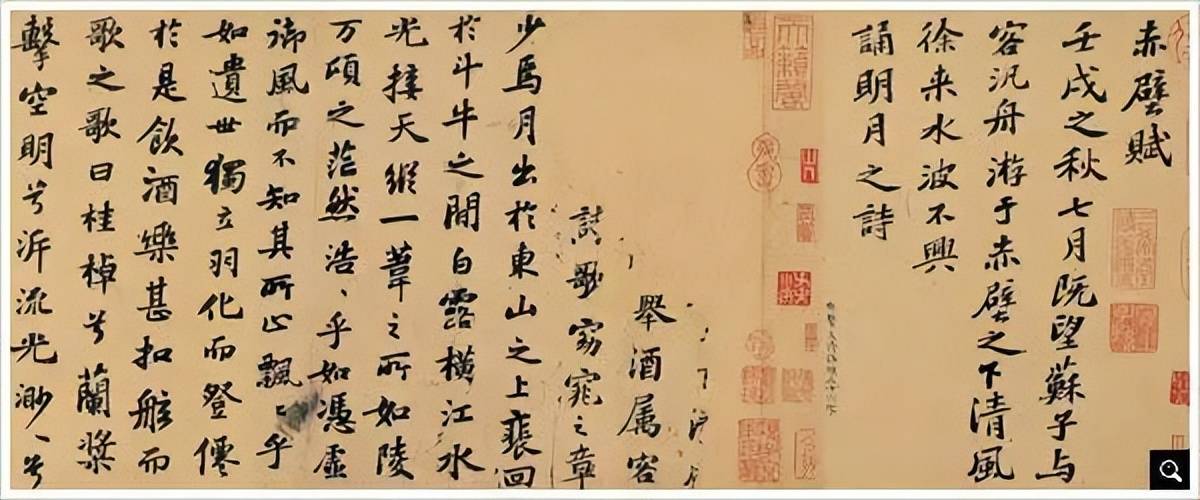 赤壁賦
壬戌之秋七月既望蘇子与
客汎舟游于赤壁之下清風
徐来水波不興
誦明月之詩
舉酒属客
歌窈窕之章
少焉月出於東山之上裴回
於斗牛之間白露横江水
光接天縱一葦之所如陵
万頃之茫然浩〻乎如憑虛
御風而不知其所止飄〻乎
如遺世獨立羽化而登僊
於是飲酒樂甚扣舷而
歌之歌曰桂棹兮蘭槳
擊空明兮泝流光渺〻兮